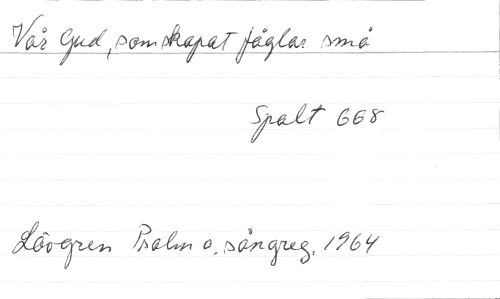 Vår Gud, som skapat fåglar små
Spalt 668
Lövgren Psalm o. sångreg. 1964